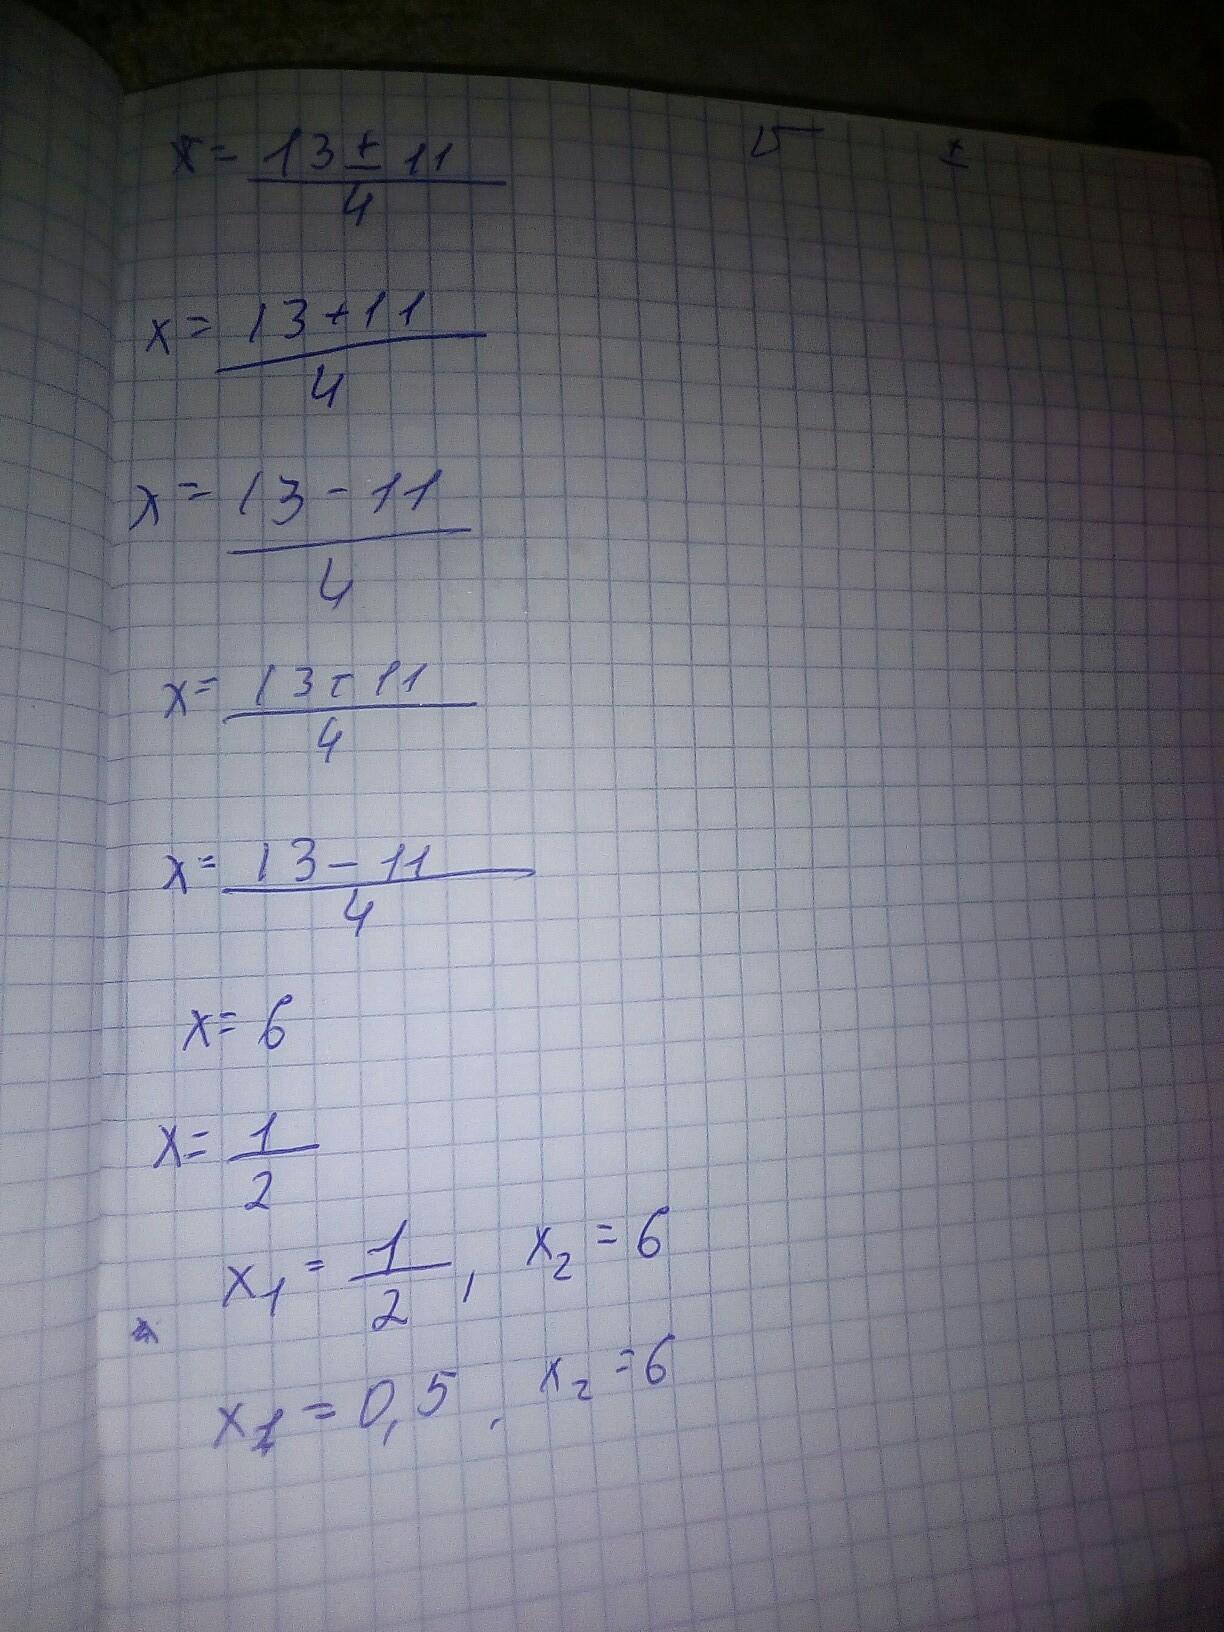 x = 13 ± 11 / 4
√ ±
x = 13 + 11 / 4
x = 13 - 11 / 4
x = 13 + 11 / 4
x = 13 - 11 / 4
x = 6
x = 1 / 2
x₁ = 1 / 2 , x₂ = 6
x₁ = 0,5 , x₂ = 6